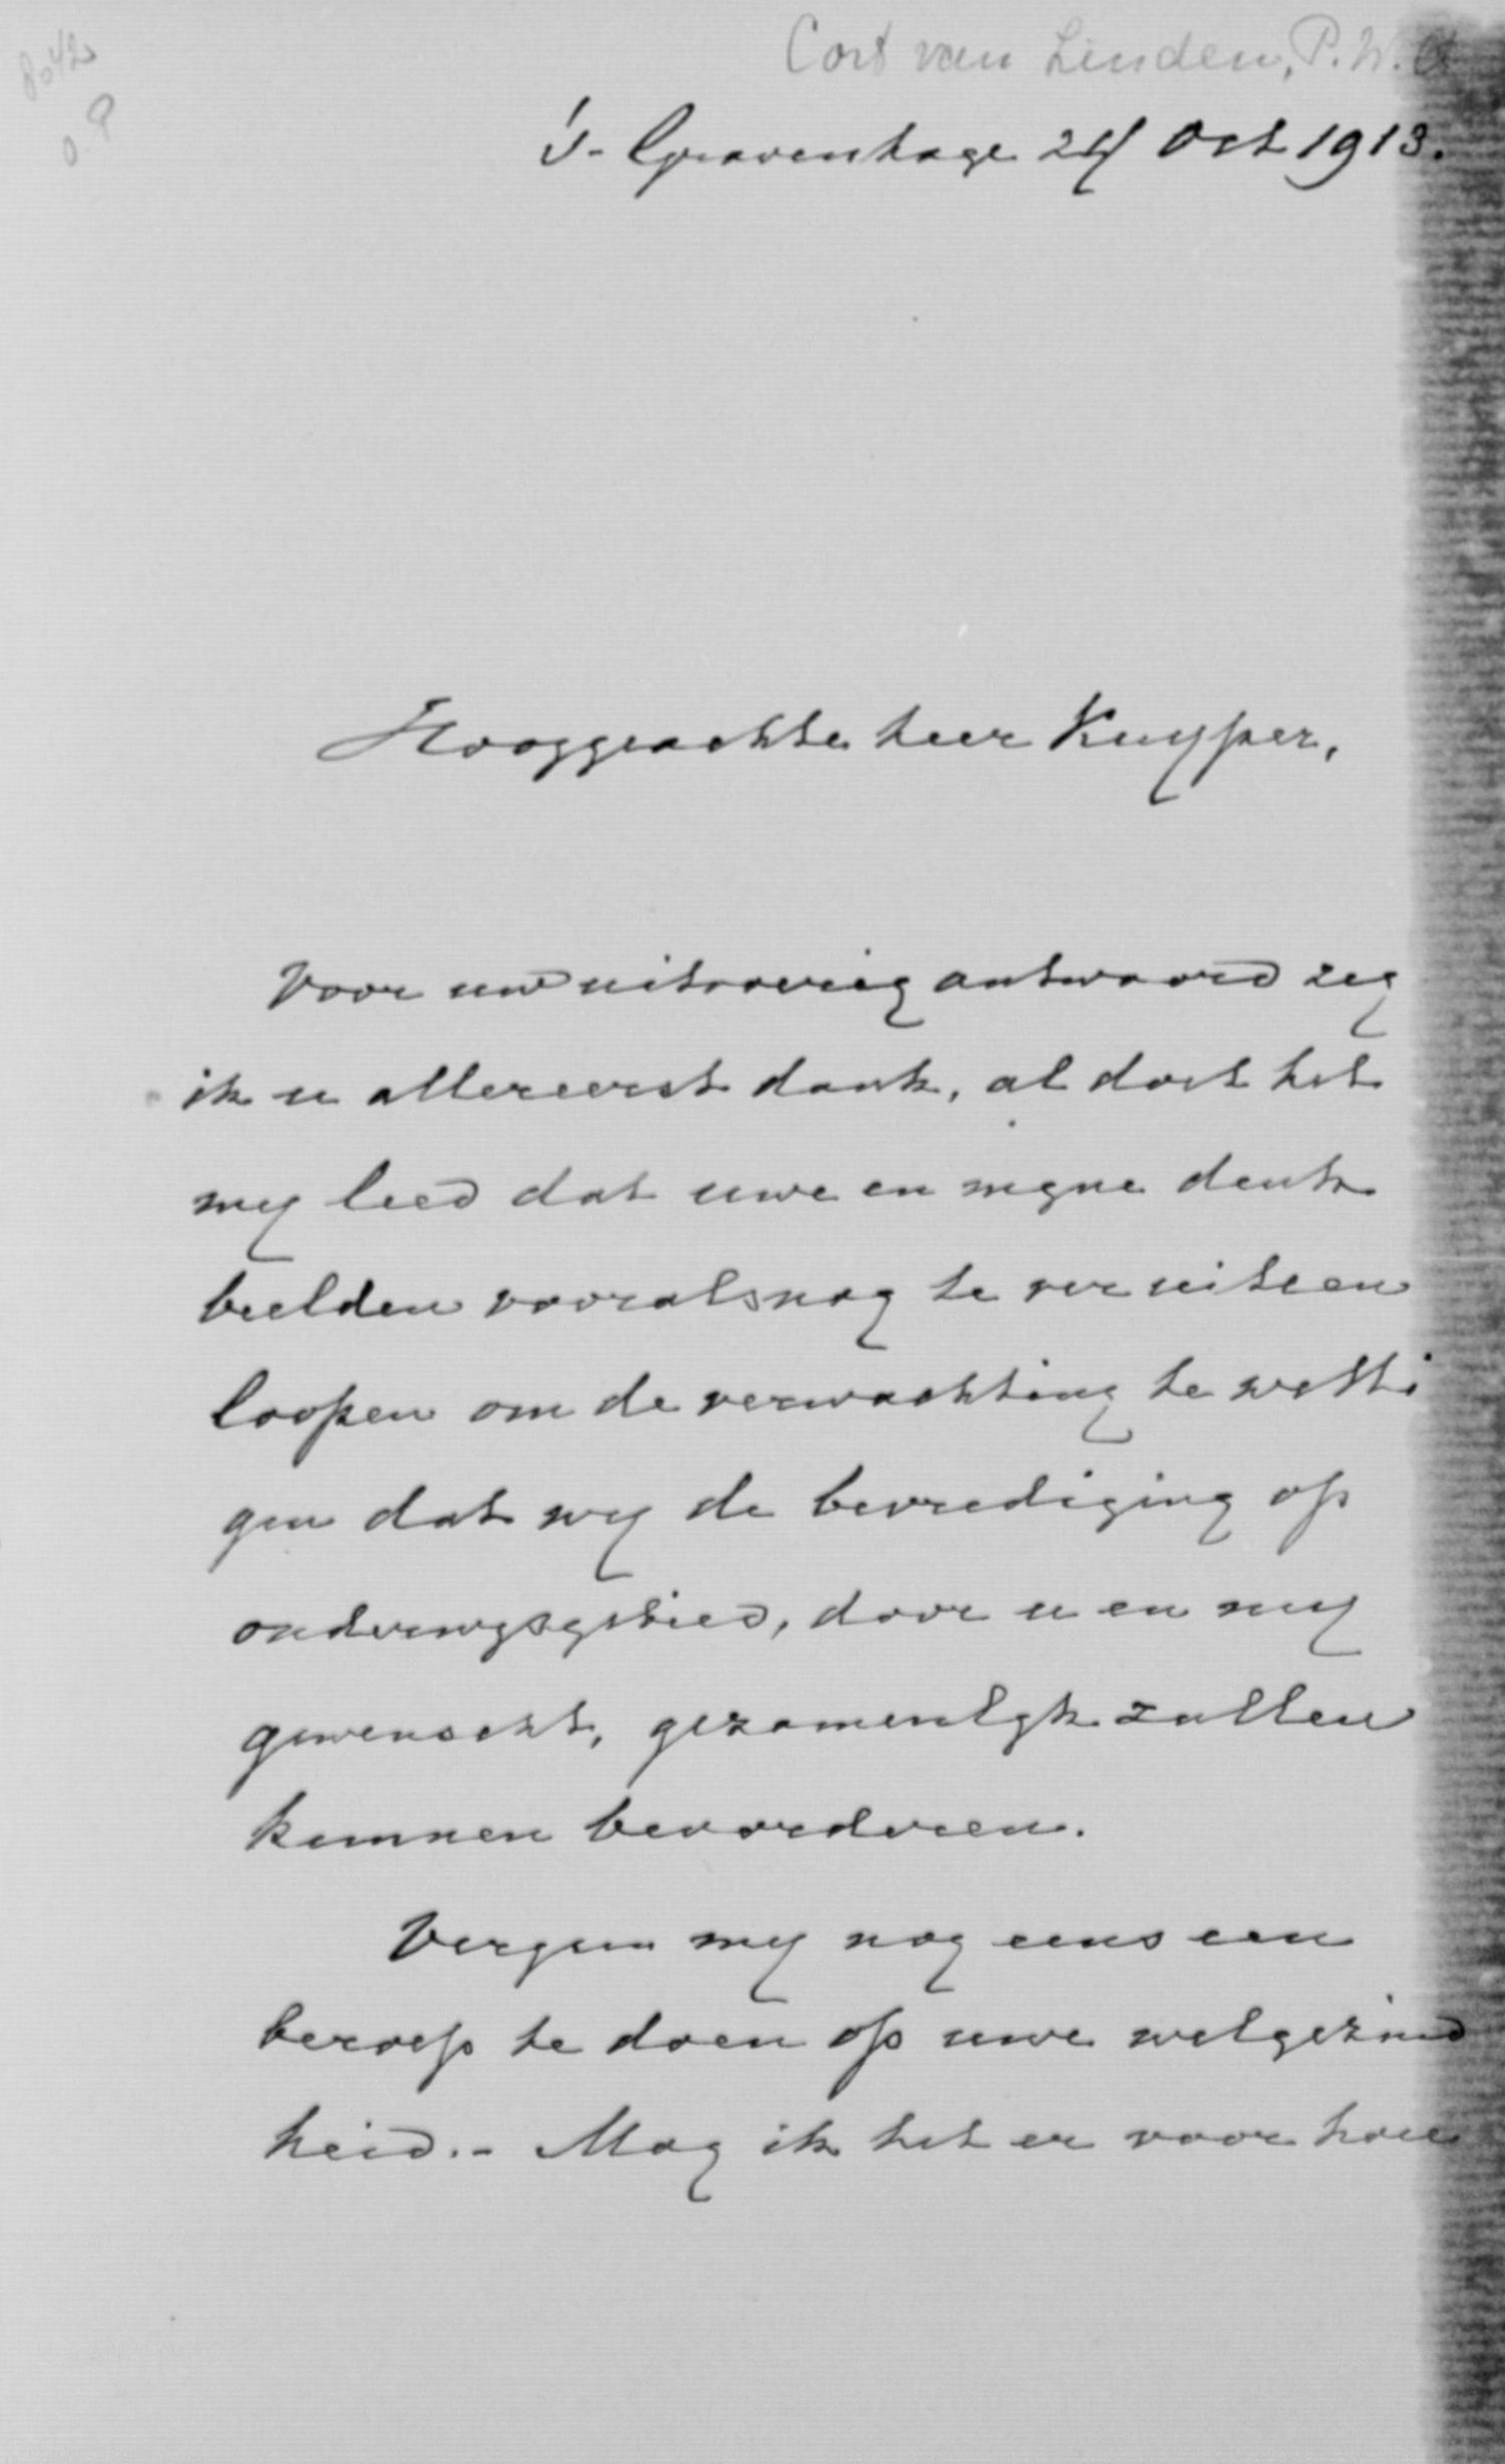 8042
Cort van Linden, P.W.A
0.9
's-Gravenhage 24 Oct 1913.
Hooggeachte heer Kuyper,
Voor uw uitvoerig antwoord zeg
ik u allereerst dank, al doet het
my leed dat uwe en mijne denk
beelden vooralsnog te ver uiteen
loopen om de verwachting te wetti
gen dat wy de bevrediging op
onderwysgebied, door u en my
gewenscht, gezamenlyk zullen
kunnen bevorderen.
Vergun my nog eens een
beroep te doen op uwe welgezind
heid.- Mag ik het er voor hou